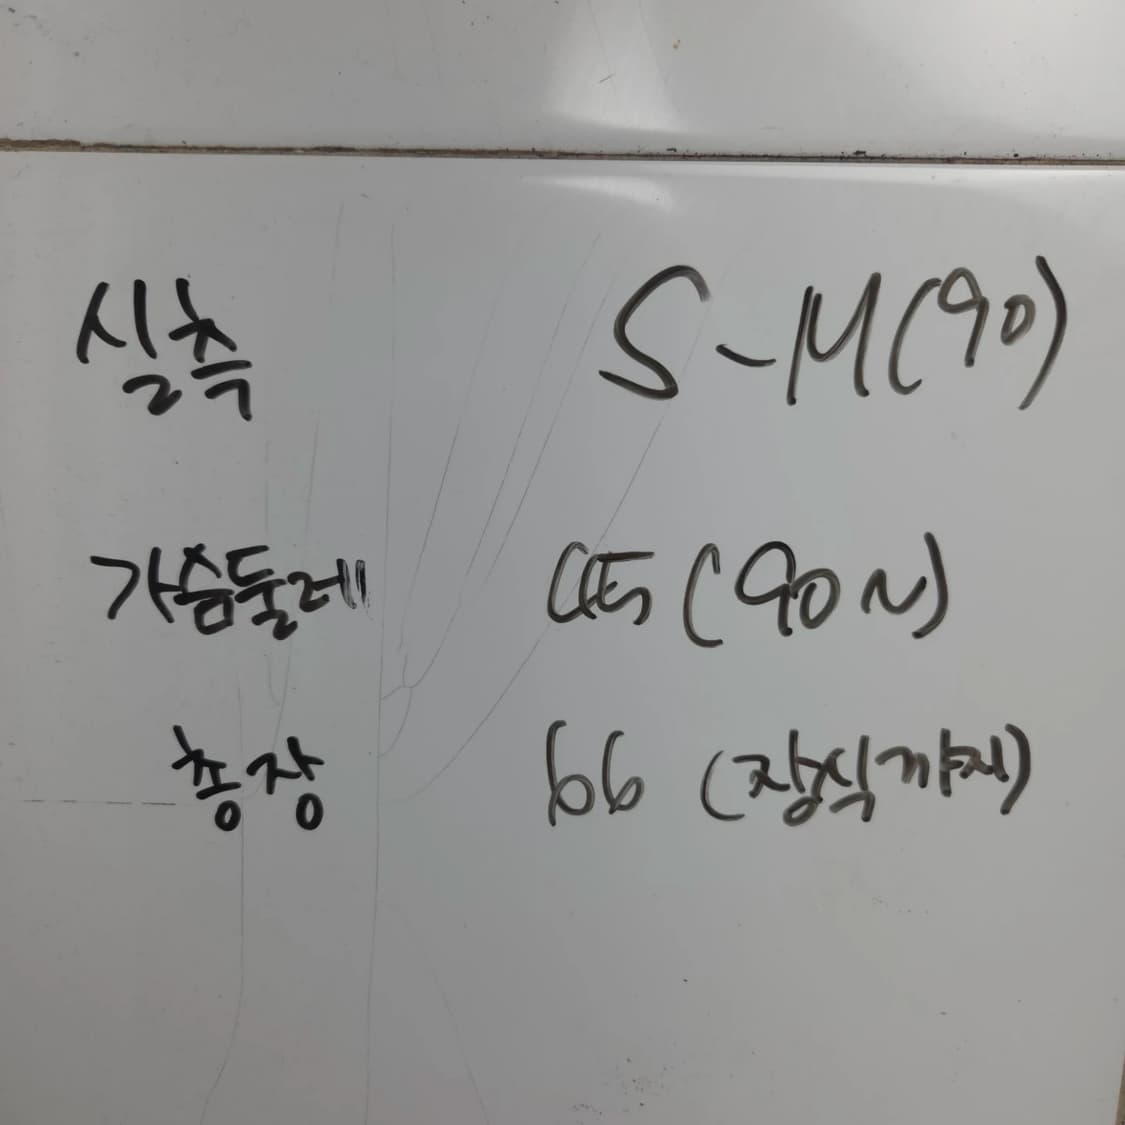 실측 S-M(90)
가슴둘레 (90~)
총장 66 (장식까지)